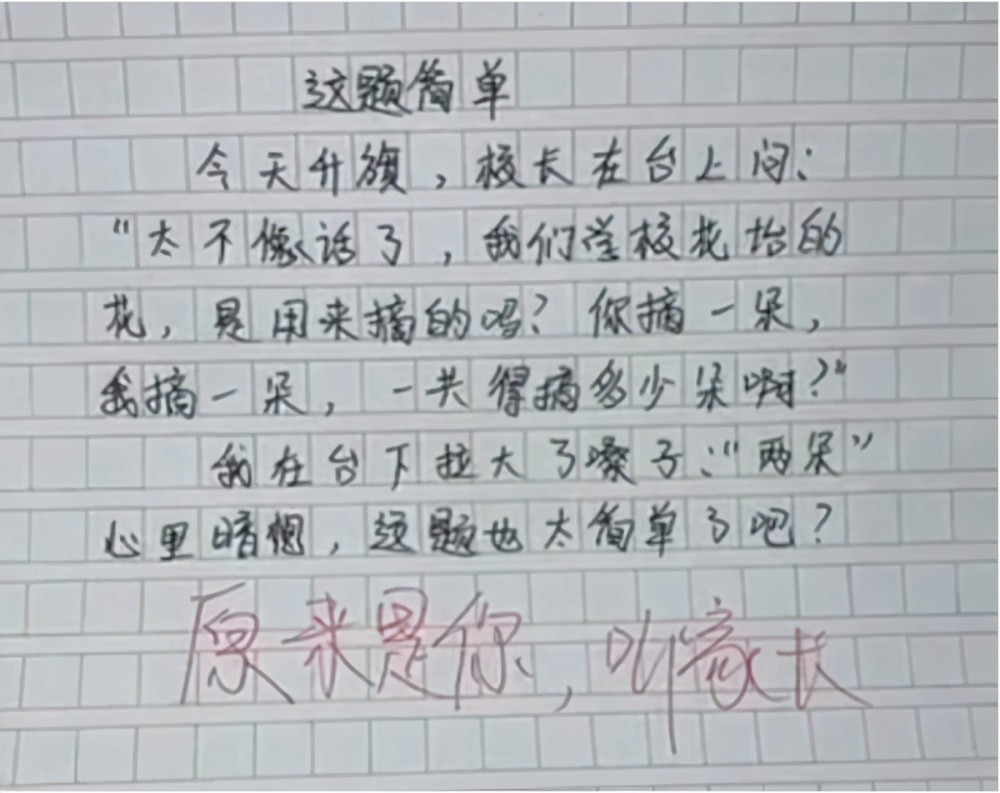 这题简单
今天升旗，校长在台上问：
“太不像话了，我们学校花坛的
花，是用来摘的吗？你摘一朵，
我摘一朵，一共得摘多少朵啊？”
我在台下拉大了嗓子：“两朵”
心里暗想，这题也太简单了吧？
原来是你，叫家长